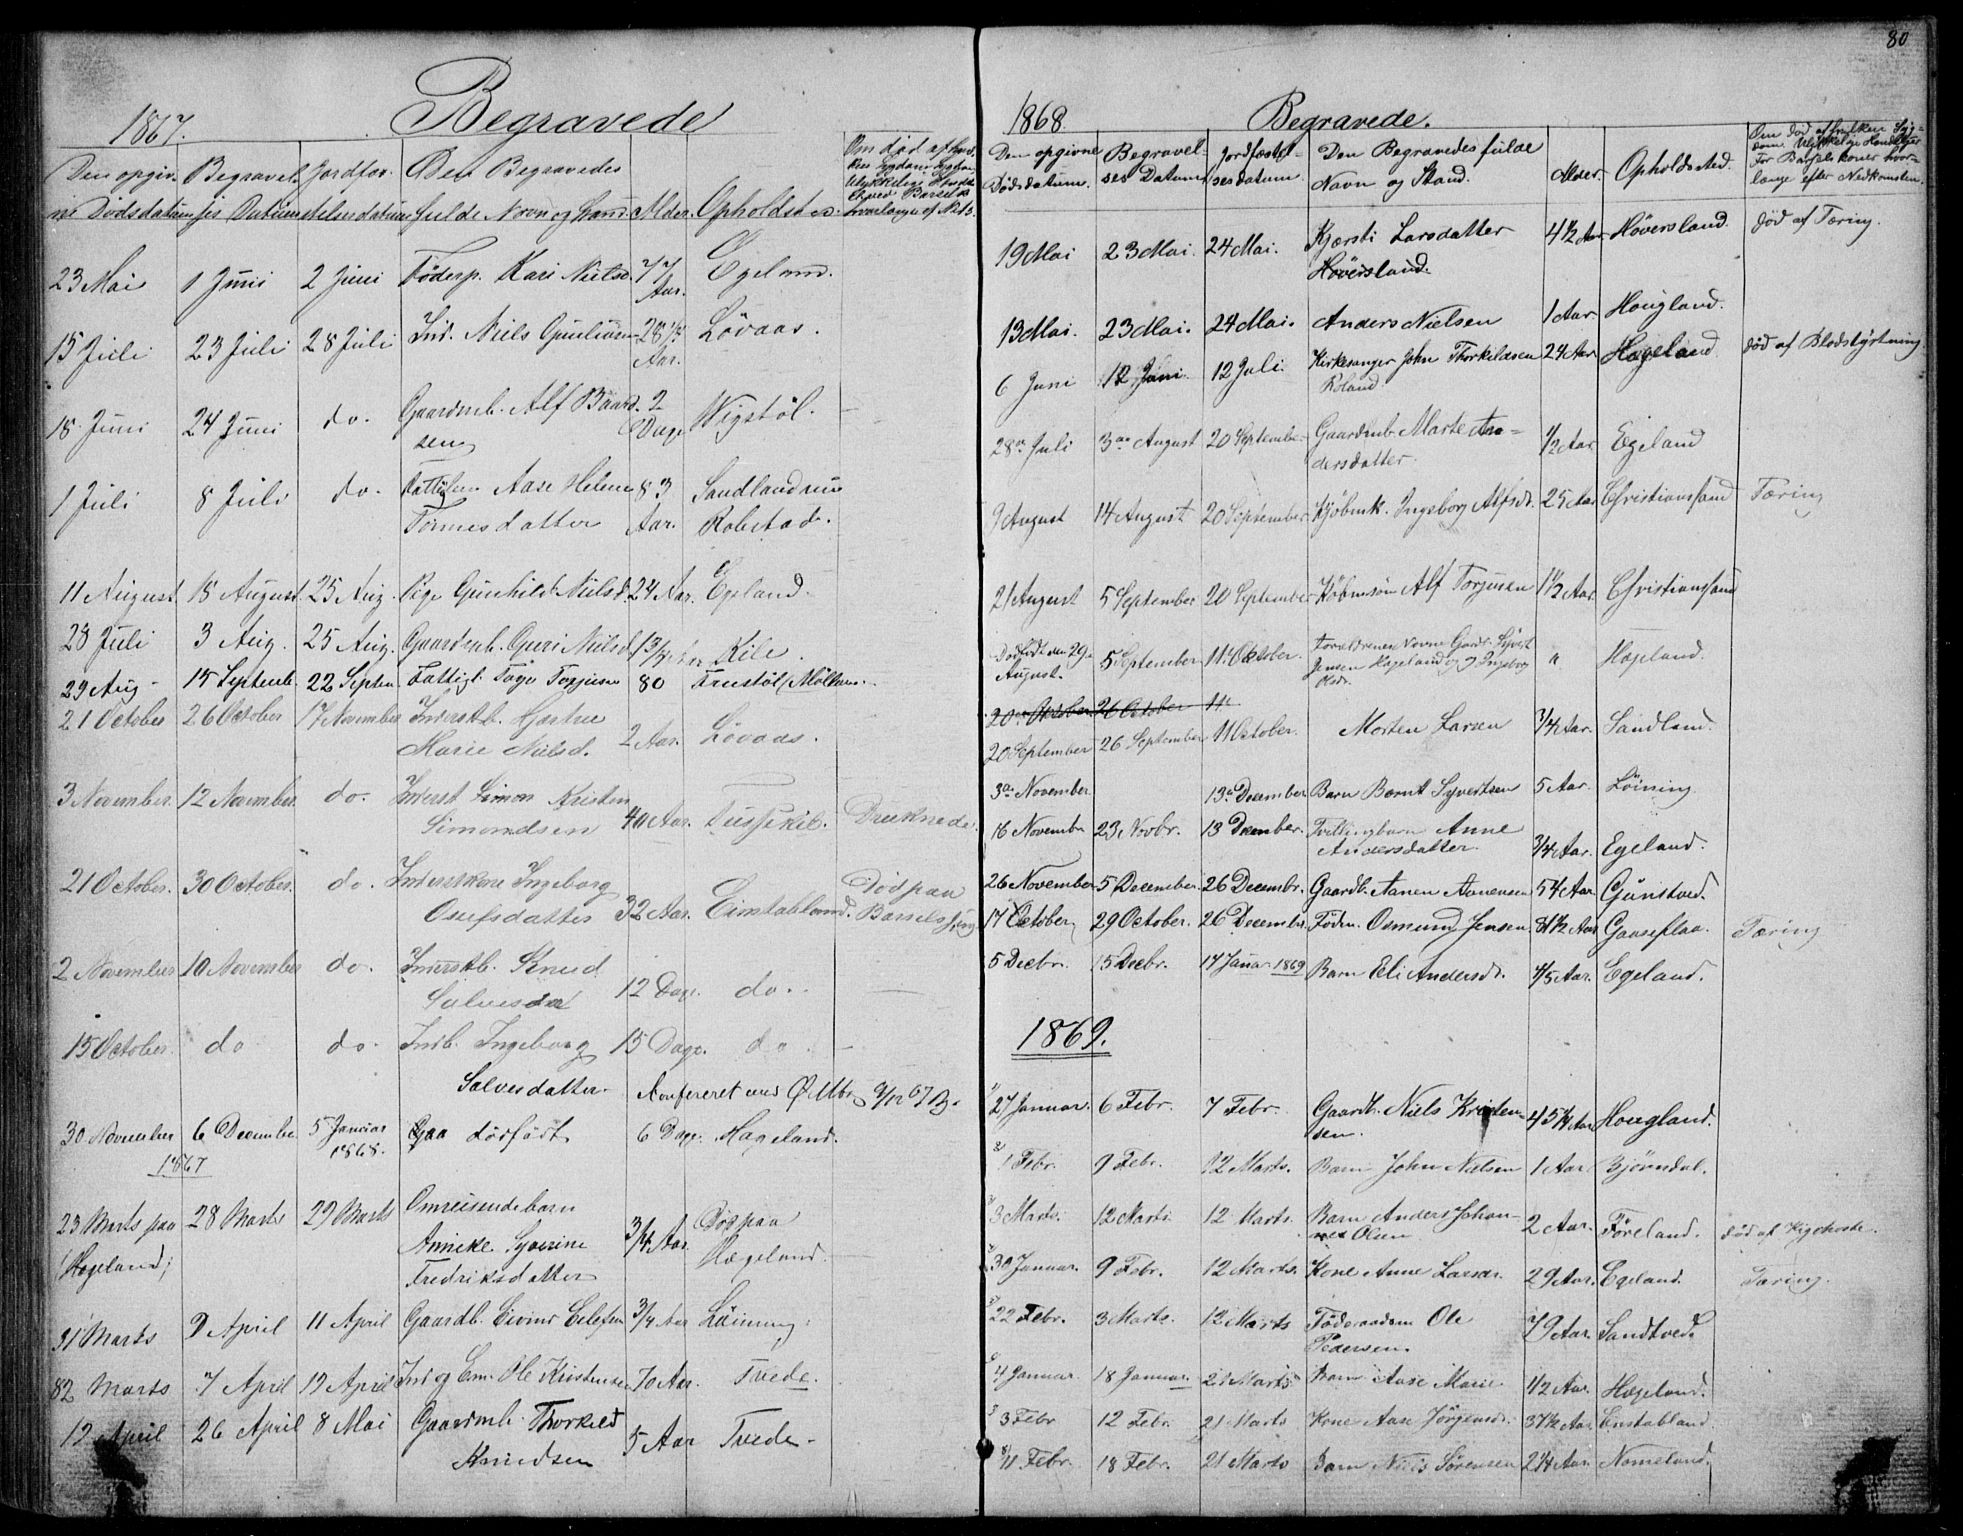 80
1867.
Begravede
Den opgiv- Begravel- Jordfæs- Den Begravedes
ne Dödsdatum ses Datum telsesdatum fulde Navn og Stand. Alder. Opholdsted.
23 Mai 1 Juni 2 Juni Föderp. Kari Nielsd. 77 Aar. Egeland.
15 Juli 23 Juli 28 Juli Ind. Niels 28 Aar. Lövaas.
18 Juni 24 Juni do. Gaardmb. Alf Baard- 2 Dage Wigstöl. —
sen
1 Juli 8 Juli do. Aase Helene 83 Sandland
Tønnesdatter Aar. Robstad.
11 August 18 August 25 Aug. Pige Gunhild Nielsd. 24 Aar. Egeland.
28 Juli 3 Aug. 25 Aug. Gaardmb. Guri Nielsd. 1 3/4 Aar Kile.
29 Aug 15 Septemb. 22 Septem. Fattigl. Tage Torjusen 80
21 October 26 October 17 November Inderstb.
Marie Nielsd. 2 Aar. Lövaas.
3 November 12 November. do. Inderst Simon Kristen
Simondsen 40 Aar. Druknede
21 October. 30 October. do. Inderstkone Ingeborg Död paa
Osufsdatter 32 Aar. Eimstabland. Barselsseng
2 November 10 November do. Inderstb. Knud
12 Dage. do.
15 October. do do. Indb. Ingeborg 15 Dage. do. —
Salvesdatter. Konfereret med
30 November 6 December 5 Januar dödfödt 6 Dage. Hageland.
1867 1868.
23 Marts paa 28 Marts 29 Marts Omreisendebarn 3/4 Aar. Död paa
(Hægeland) Annicke Syverine Hægeland.
Fredriksdatter
31 Marts 9 April 11 April Gaardb. Eivind 3/4 Aar Löining.
82 Marts 7 April 12 April Ind og Em. Ole Kristensen 70 Aar. Tvede.
12 April 26 April 8 Mai Gaardmb. Thorkild
Knudsen 5 Aar Tvede.
1868.
Begravede.
Den opgivne Begravel- Jordfæstel- Den Begravedes fulde Alder. Opholdssted. Om död af hvilken Syg-
Dödsdatum. ses Datum sesdatum. Navn og Stand. dom. Ulykkelig Hændelse
For Barselskoner hvor-
længe efter Nedkomsten.
19 Mai 23 Mai. 24 Mai. Kjersti Larsdatter 4 1/2 Aar Höversland. död af Tæring.
Höversland.
13 Mai. 23 Mai. 24 Mai. Anders Nielsen 1 Aar. Hougland.
6 Juni 12 Juni. 12 Juli. Kirkesanger John Thorkildsen 24 Aar Hageland. död af Blodstyrtning.
Roland
28de Juli 3die August 20 September Gaardmb. Marte An- 1/2 Aar. Egeland
dersdatter.
9 August 14 August 20 September Kjöbmk. Ingeborg Alfsd. 25 Aar Christianssand Tæring
21 August 5 September 20 September Köbmsön Alf Torjusen 1 1/2 Aar. Christianssand
Dödfödt den 29 5 September 11te October. Forældrenes Navne Gaardb. Syvert " Hægeland.
August. Jensen Hageland og Ingeborg
Olsd.
20de October 26 October 11te
20 September 26 September 11 October. Morten Larsen 3/4 Aar. Sandland.
3die November 13de December Barn Bernt Syvertsen 5 Aar. Löining
16 Novembr 23 Novbr. 13 December. Tvillingbarn Anne
Andersdatter. 3/4 Aar. Egeland.
26 November 5 December. 26 Decembr. Gaardb. Aanen Aanensen 54 Aar Gunstved.
17 October 29 October. 26 December. Födm. Osmund Jensen 81 1/2 Aar Gaaseflaa. Tæring
5 Decbr. 15 Decbr. 17 Januar 1869 Barn Eli Andersd. 4/5 Aar. Egeland.
1869.
1) 27 Januar. 6 Febr. 7 Febr. Gaardb. Niels Kristen- 45 1/2 Aar Hougland.
sen.
2) 1 Febr. 9 Febr. 12 Marts. Barn John Nielsen 1 Aar. Björndal.
3) 3 Marts. 12 Marts 12 Marts. Barn Anders Johan- 2 Aar. Föreland. död af Kighoste.
nes Olsen
4) 30 Januar. 9 Febr. 12 Marts. Kone Anne Larsdr. 29 Aar. Egeland. Tæring.
5) 22 Febr. 3 Marts. 12 Marts Föderaadsm Ole 79 Aar. Sandtved.
Pedersen.
6) 4 Januar. 18 Januar. 21 Marts Barn Aase Marie 1/2 Aar. Hægeland.
7) 3 Febr 12 Febr. 21 Marts Kone Aase Jörgensd. 37 1/2 Aar Enstabland.
8) 11 Febr. 18 Febr. 21 Marts Barn Niels Sörensen 2 1/4 Aar. Nomeland.